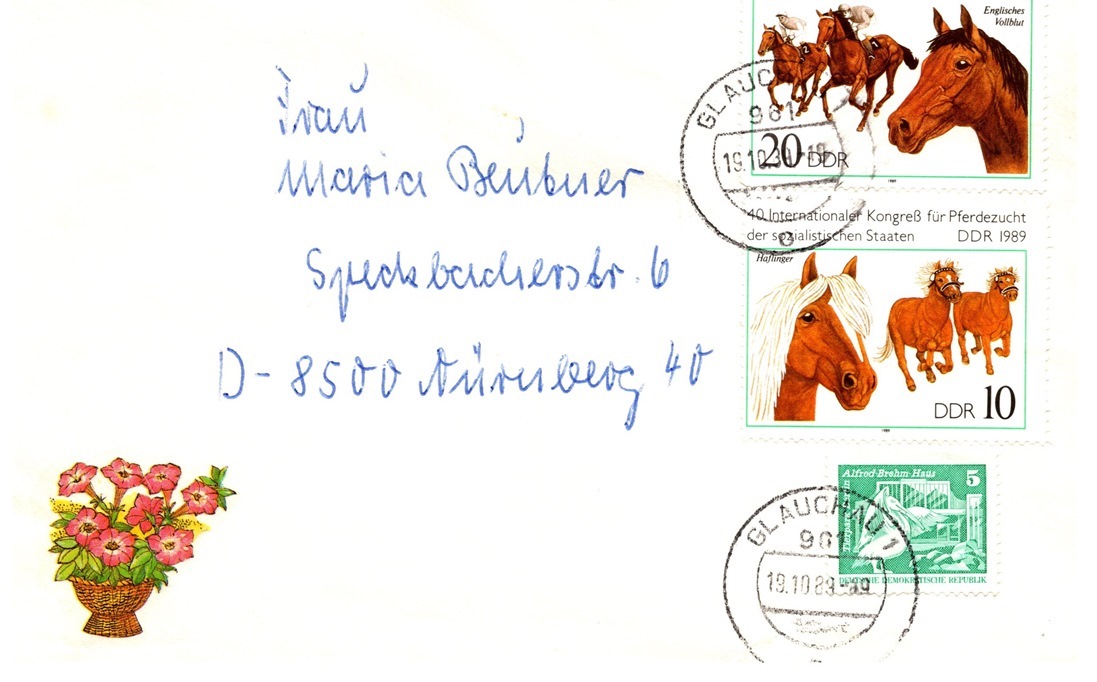 Englisches
Vollblut
20 DDR
40. Internationaler Kongreß für Pferdezucht
der sozialistischen Staaten DDR 1989
Haflinger
DDR 10
Alfred-Brehm-Haus 5
DEUTSCHE DEMOKRATISCHE REPUBLIK
GLAUC
961
19.10.
GLAUCHAU 1
961
19.10.89
Frau
Maria Beubner
Speckbacherstr. 6
D-8500 Nürnberg 40